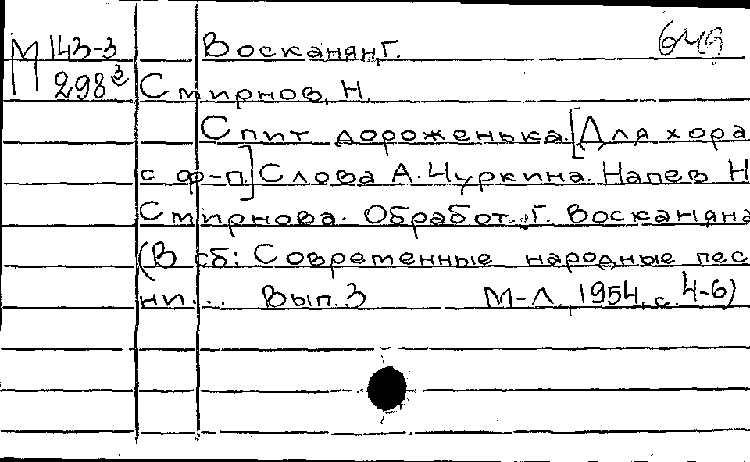 М 143-3 Восканян, Г. 649
298³ Смирнов, Н.
Спит дороженька. [Для хора
с ф-п.] Слова А. Чуркина. Напев Н.
Смирнова. Обработ. Г. Восканяна
(В сб: Современные народные пес
ни... Вып. 3 М-Л, 1954, с. 4-6)